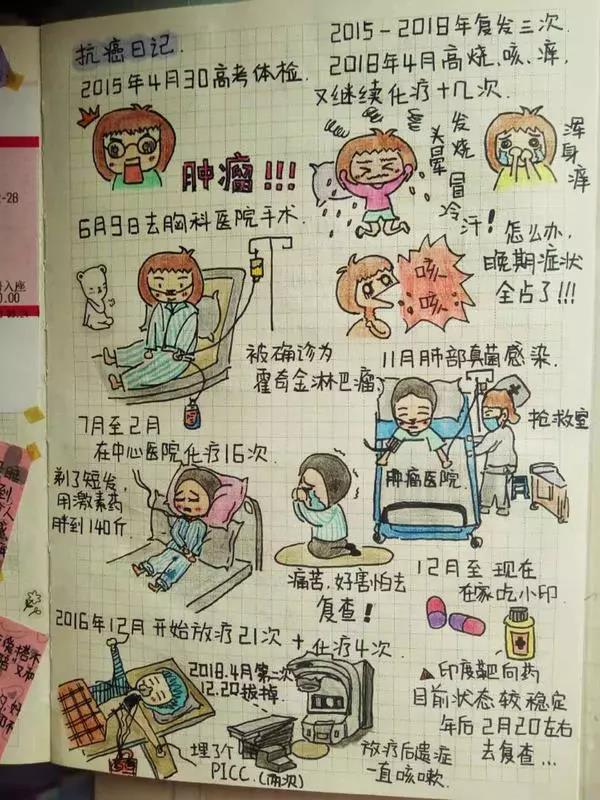 抗癌日记.
2015年4月30高考体检.
肿瘤!!!
6月9日去胸科医院手术.
被确诊为
霍奇金淋巴瘤
7月至2月
在中心医院化疗16次.
剃了短发,
用激素药
胖到140斤.
痛苦,好害怕去
复查!
2016年12月开始放疗21次+化疗4次.
2018.4月第二次
12.20拔掉.
埋了个
PICC.(两次)
放疗后遗症
一直咳嗽.
2015-2018年复发三次.
2018年4月高烧、咳、痒,
又继续化疗十几次.
发烧
头晕
冒冷汗!
浑身痒
怎么办,
晚期症状
全占了!!!
咳!
咳!
11月肺部真菌感染.
抢救室
肿瘤医院
12月至现在
在家吃小印.
印度靶向药
目前状态较稳定
年后2月20左右
去复查...
-28
入座
.00